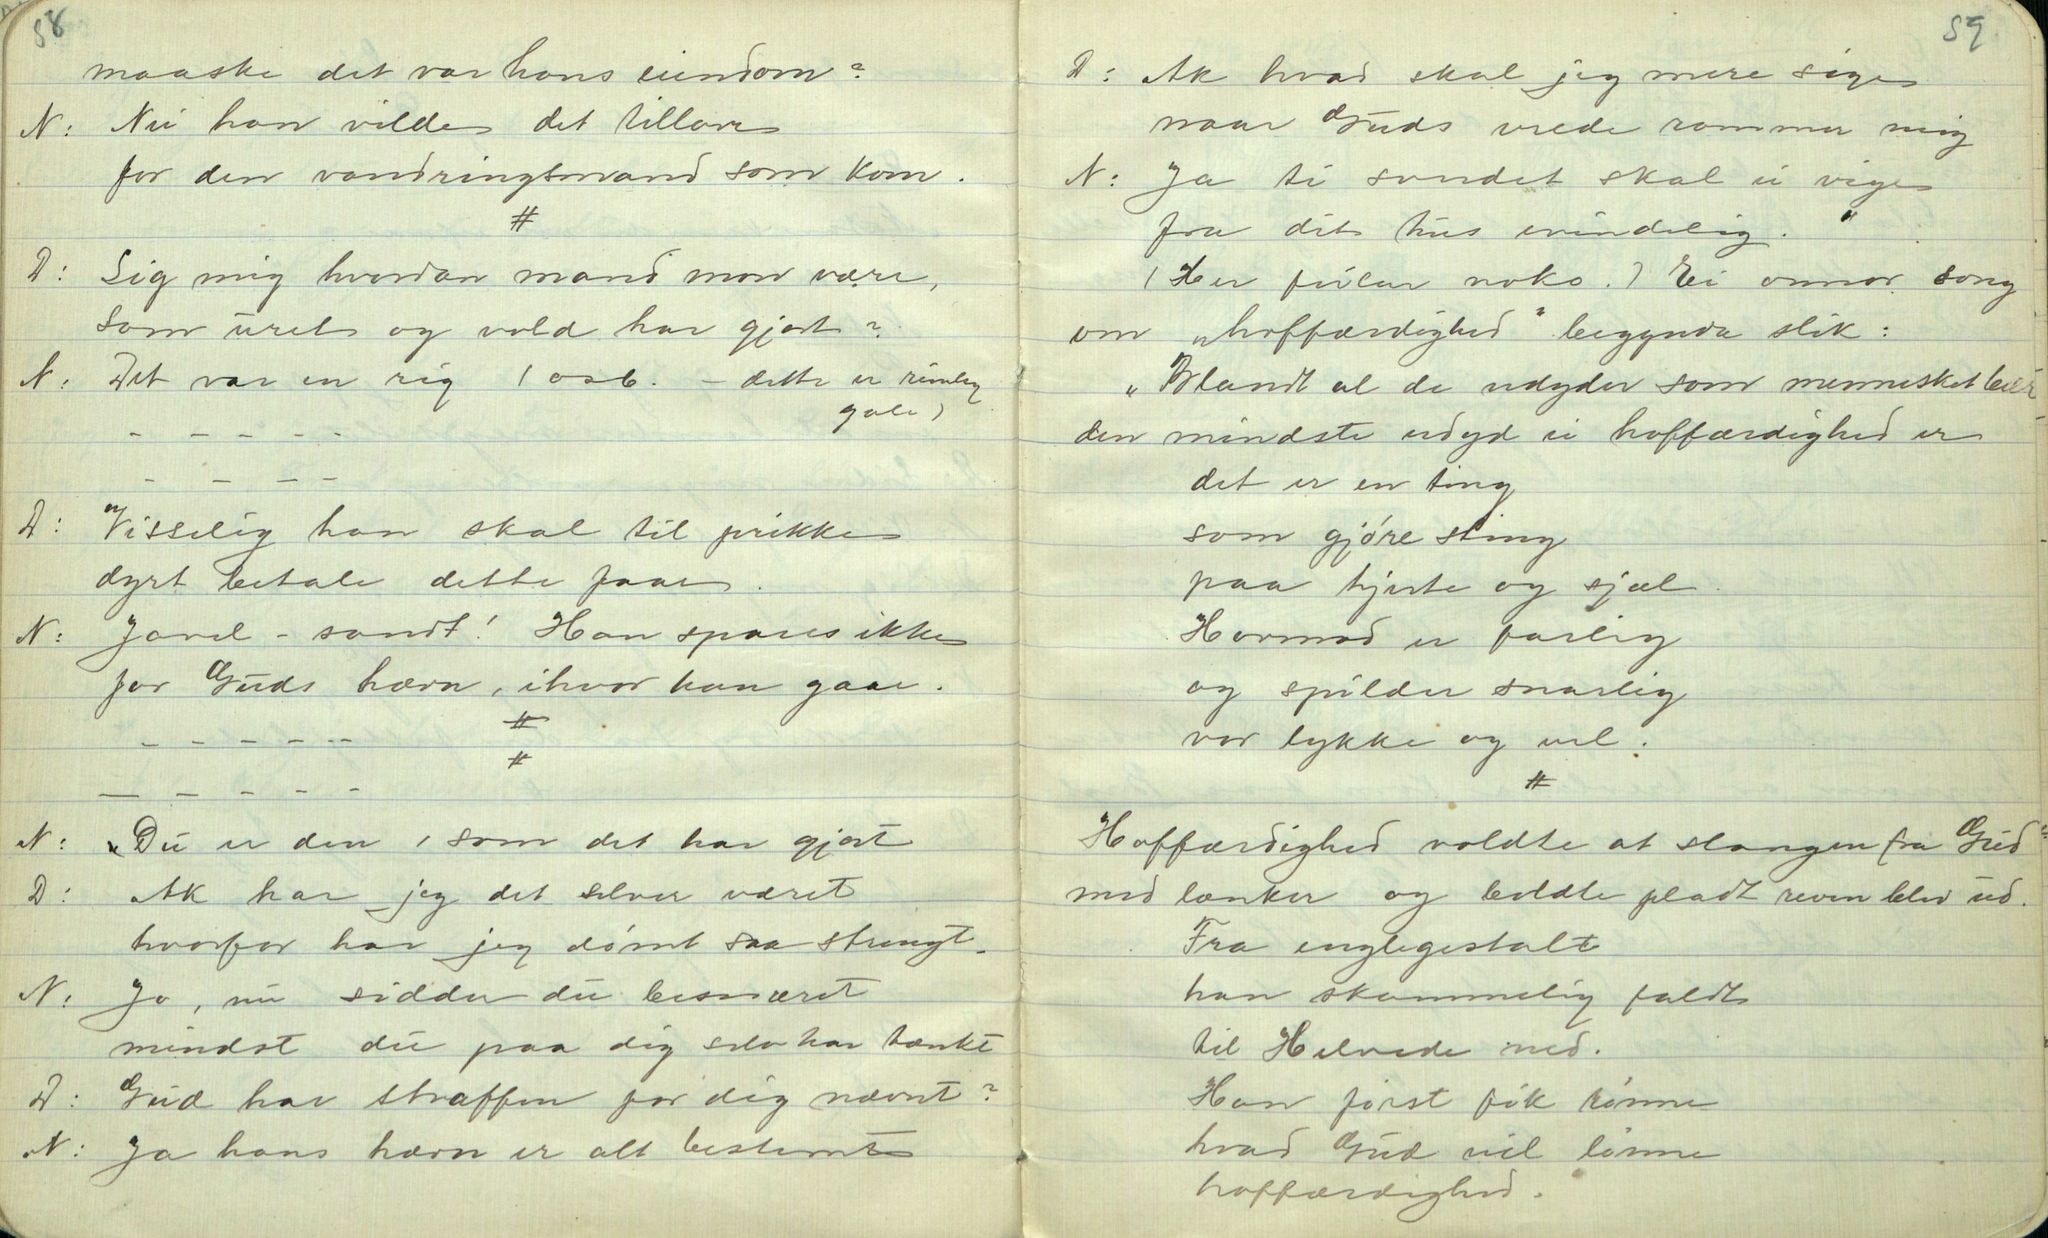 58
maaske det var hans eiendom?
N: Nei han vilde det tillave
for den vandringsmand som kom.
#
D: Sig mig hvordan mand mon være,
som uret og vold har gjort?
N: Det var en rig (osb. - dette er rimeleg
gale)
- - - - -
- - - -
D: Visselig han skal til prikke
dyrt betale dette faar.
N: Javel - sandt! Han spares ikke
for Guds hævn, ihvor han gaar.
#
- - - - -
#
- - - - -
N: "Du er den, som det har gjort
D: Ak har jeg det selver været
hvorfor har jeg dømt saa strengt.
N: Jo, nu sidder du besnæret
mindst du paa dig selv har tænkt
D: Gud har straffen for dig nævnt?
N: Ja hans hævn er alt bestemt
59
D: Ak hvad skal jeg mere sige
naar Guds vrede rammer mig
N: Ja ti sverdet skal ei vige
fra dit hus evindelig."
(Her feilar noko.) Ei onnor song
om "hoffærdighed" begynda slik:
"Blandt al de udyder som mennesket bær
den mindste udyd ei hoffærdighed er
det er en ting
som gjøre sting
paa hjerte og sjæl.
Hovmod er farlig
og spilder snarlig
vor lykke og vel.
#
Hoffærdighed voldte at slangen fra Gud
med lænker og bolte pladt reven blev ud.
Fra englegestalt
han skammelig faldt
til Helvede ned.
Han først fik rønne
hvad Gud vil lønne
hoffærdighed.